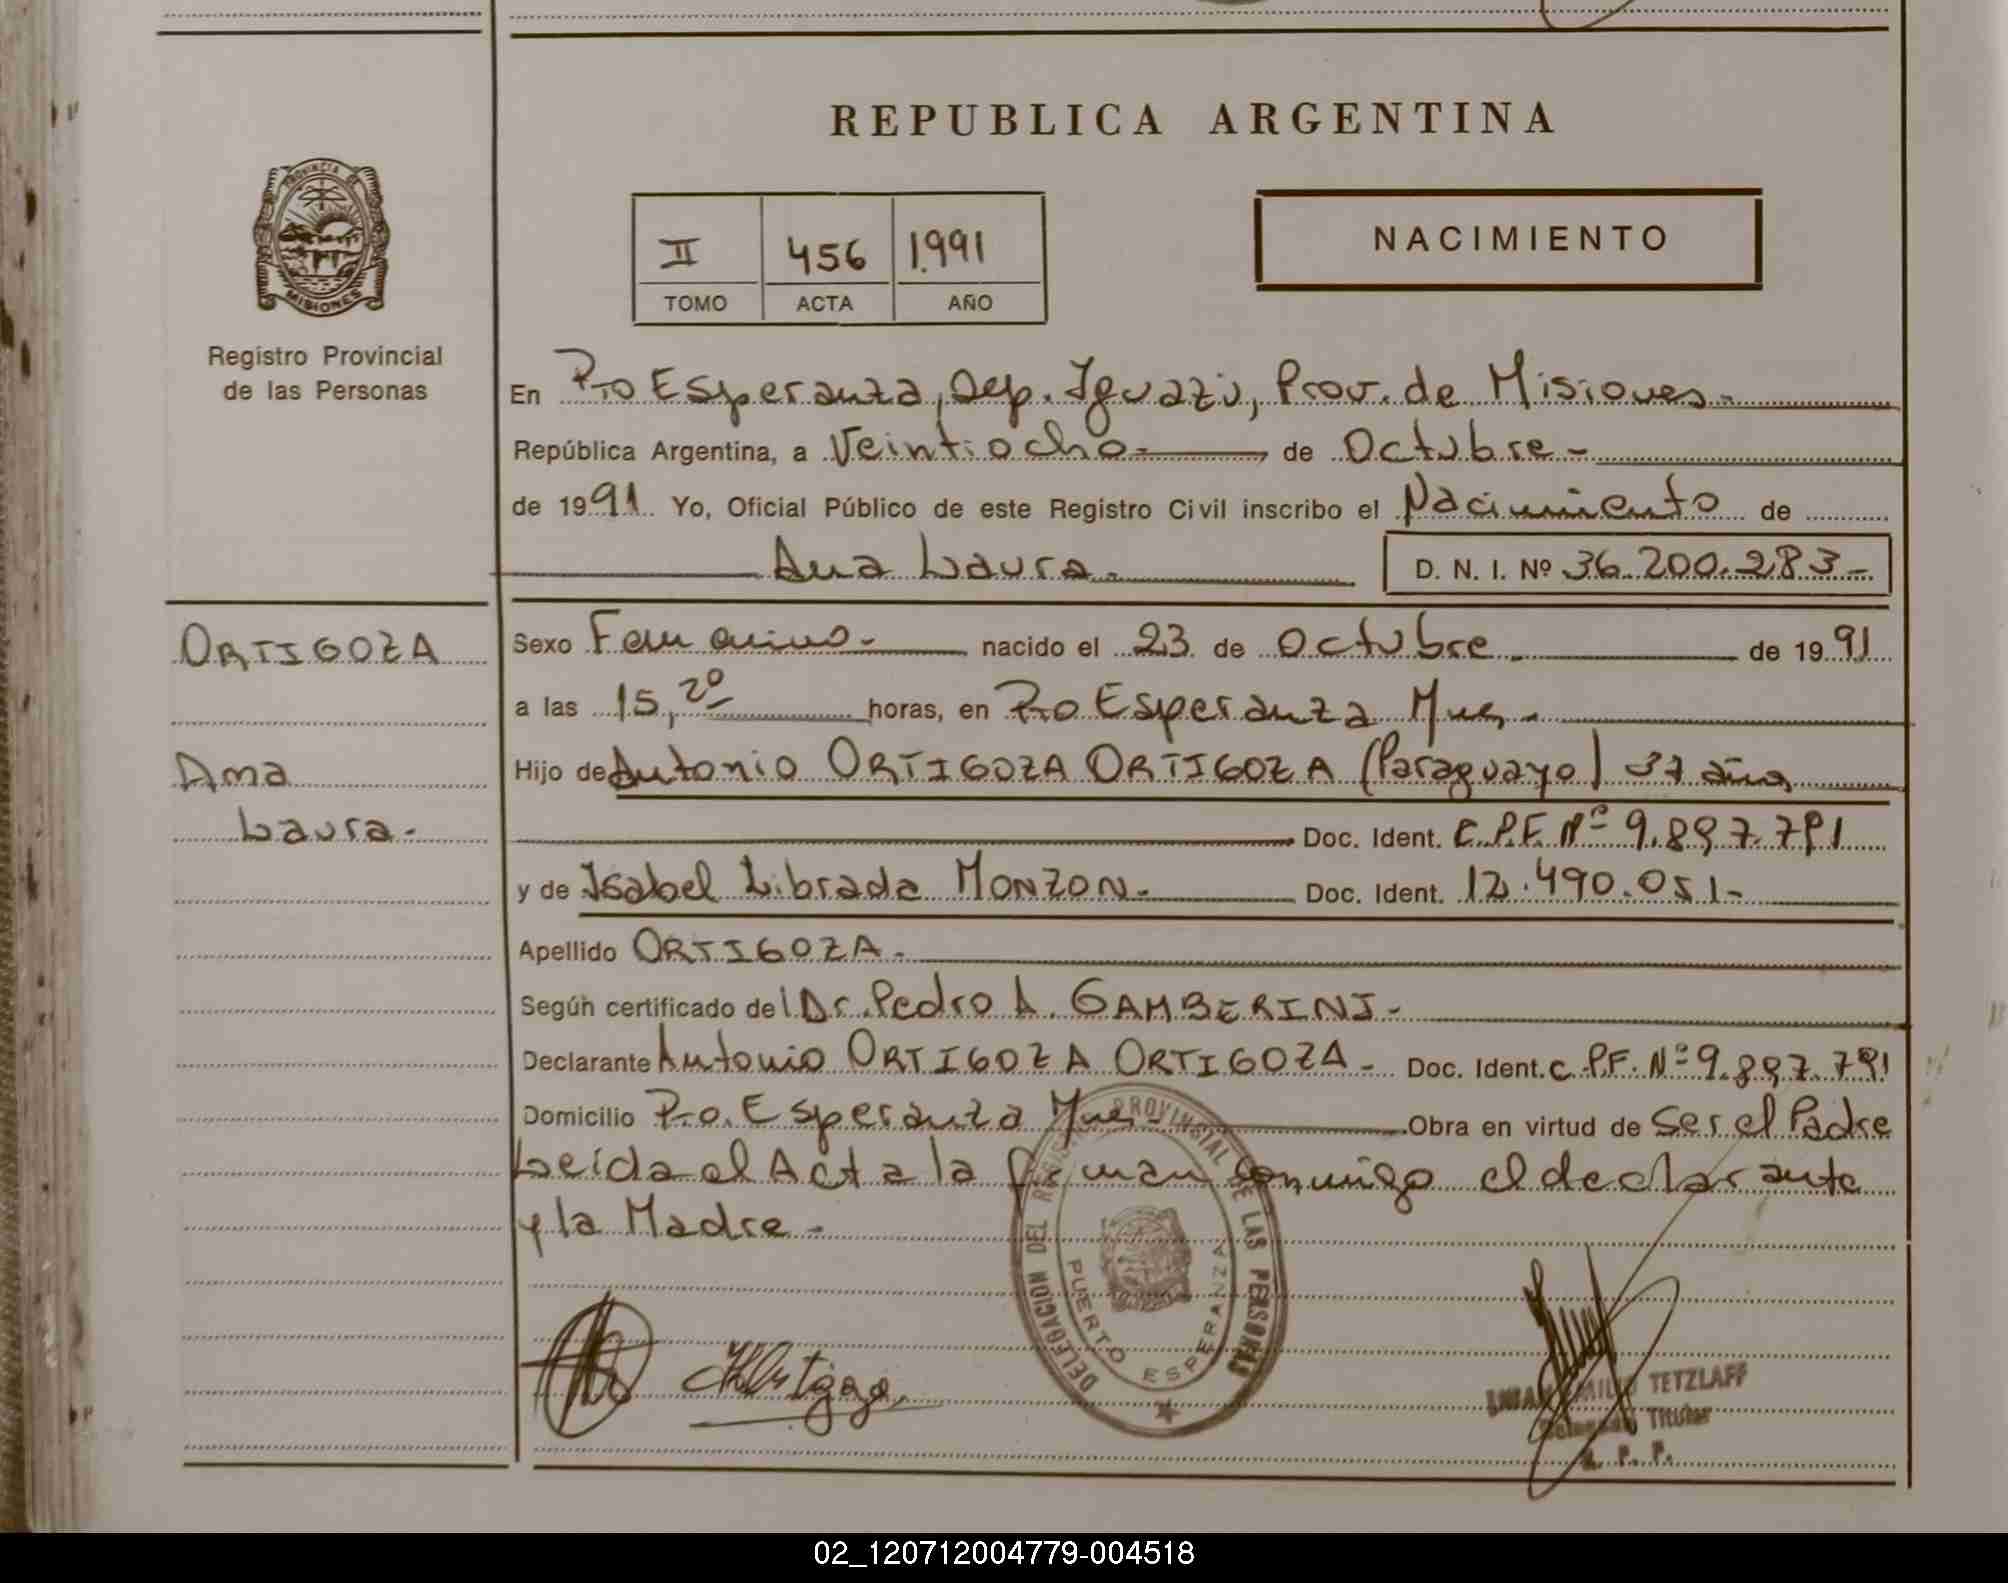 REPUBLICA ARGENTINA
PROVINCIA DE
MISIONES
Registro Provincial
de las Personas
II 456 1.991
TOMO ACTA AÑO
NACIMIENTO
En Pto Esperanza, Dep. Iguazú, Prov. de Misiones.-
República Argentina, a Veintiocho- de Octubre-
de 1991 Yo, Oficial Público de este Registro Civil inscribo el Nacimiento de
Ana Laura. D. N. I. Nº 36.200.283-
ORTIGOZA
Ana
Laura.-
Sexo Femenino- nacido el 23 de Octubre- de 1991
a las 15,20 horas, en Pto Esperanza Mnes.-
Hijo de Antonio ORTIGOZA ORTIGOZA (Paraguayo) 37 años
Doc. Ident. C.P.F. Nº 9.897.791
y de Isabel Librada MONZON.- Doc. Ident. 12.490.051-
Apellido ORTIGOZA.-
Según certificado del Dr. Pedro A. GAMBERINI-
Declarante Antonio ORTIGOZA ORTIGOZA- Doc. Ident. C.P.F. Nº 9.897.791
Domicilio Pto. Esperanza Mnes- Obra en virtud de Ser el Padre
Leída el Acta la firman conmigo el declarante
y la Madre-
DELEGACION DEL REGISTRO PROVINCIAL DE LAS PERSONAS
PUERTO ESPERANZA
TETZLAFF
Titular
R. P. P.
02_120712004779-004518